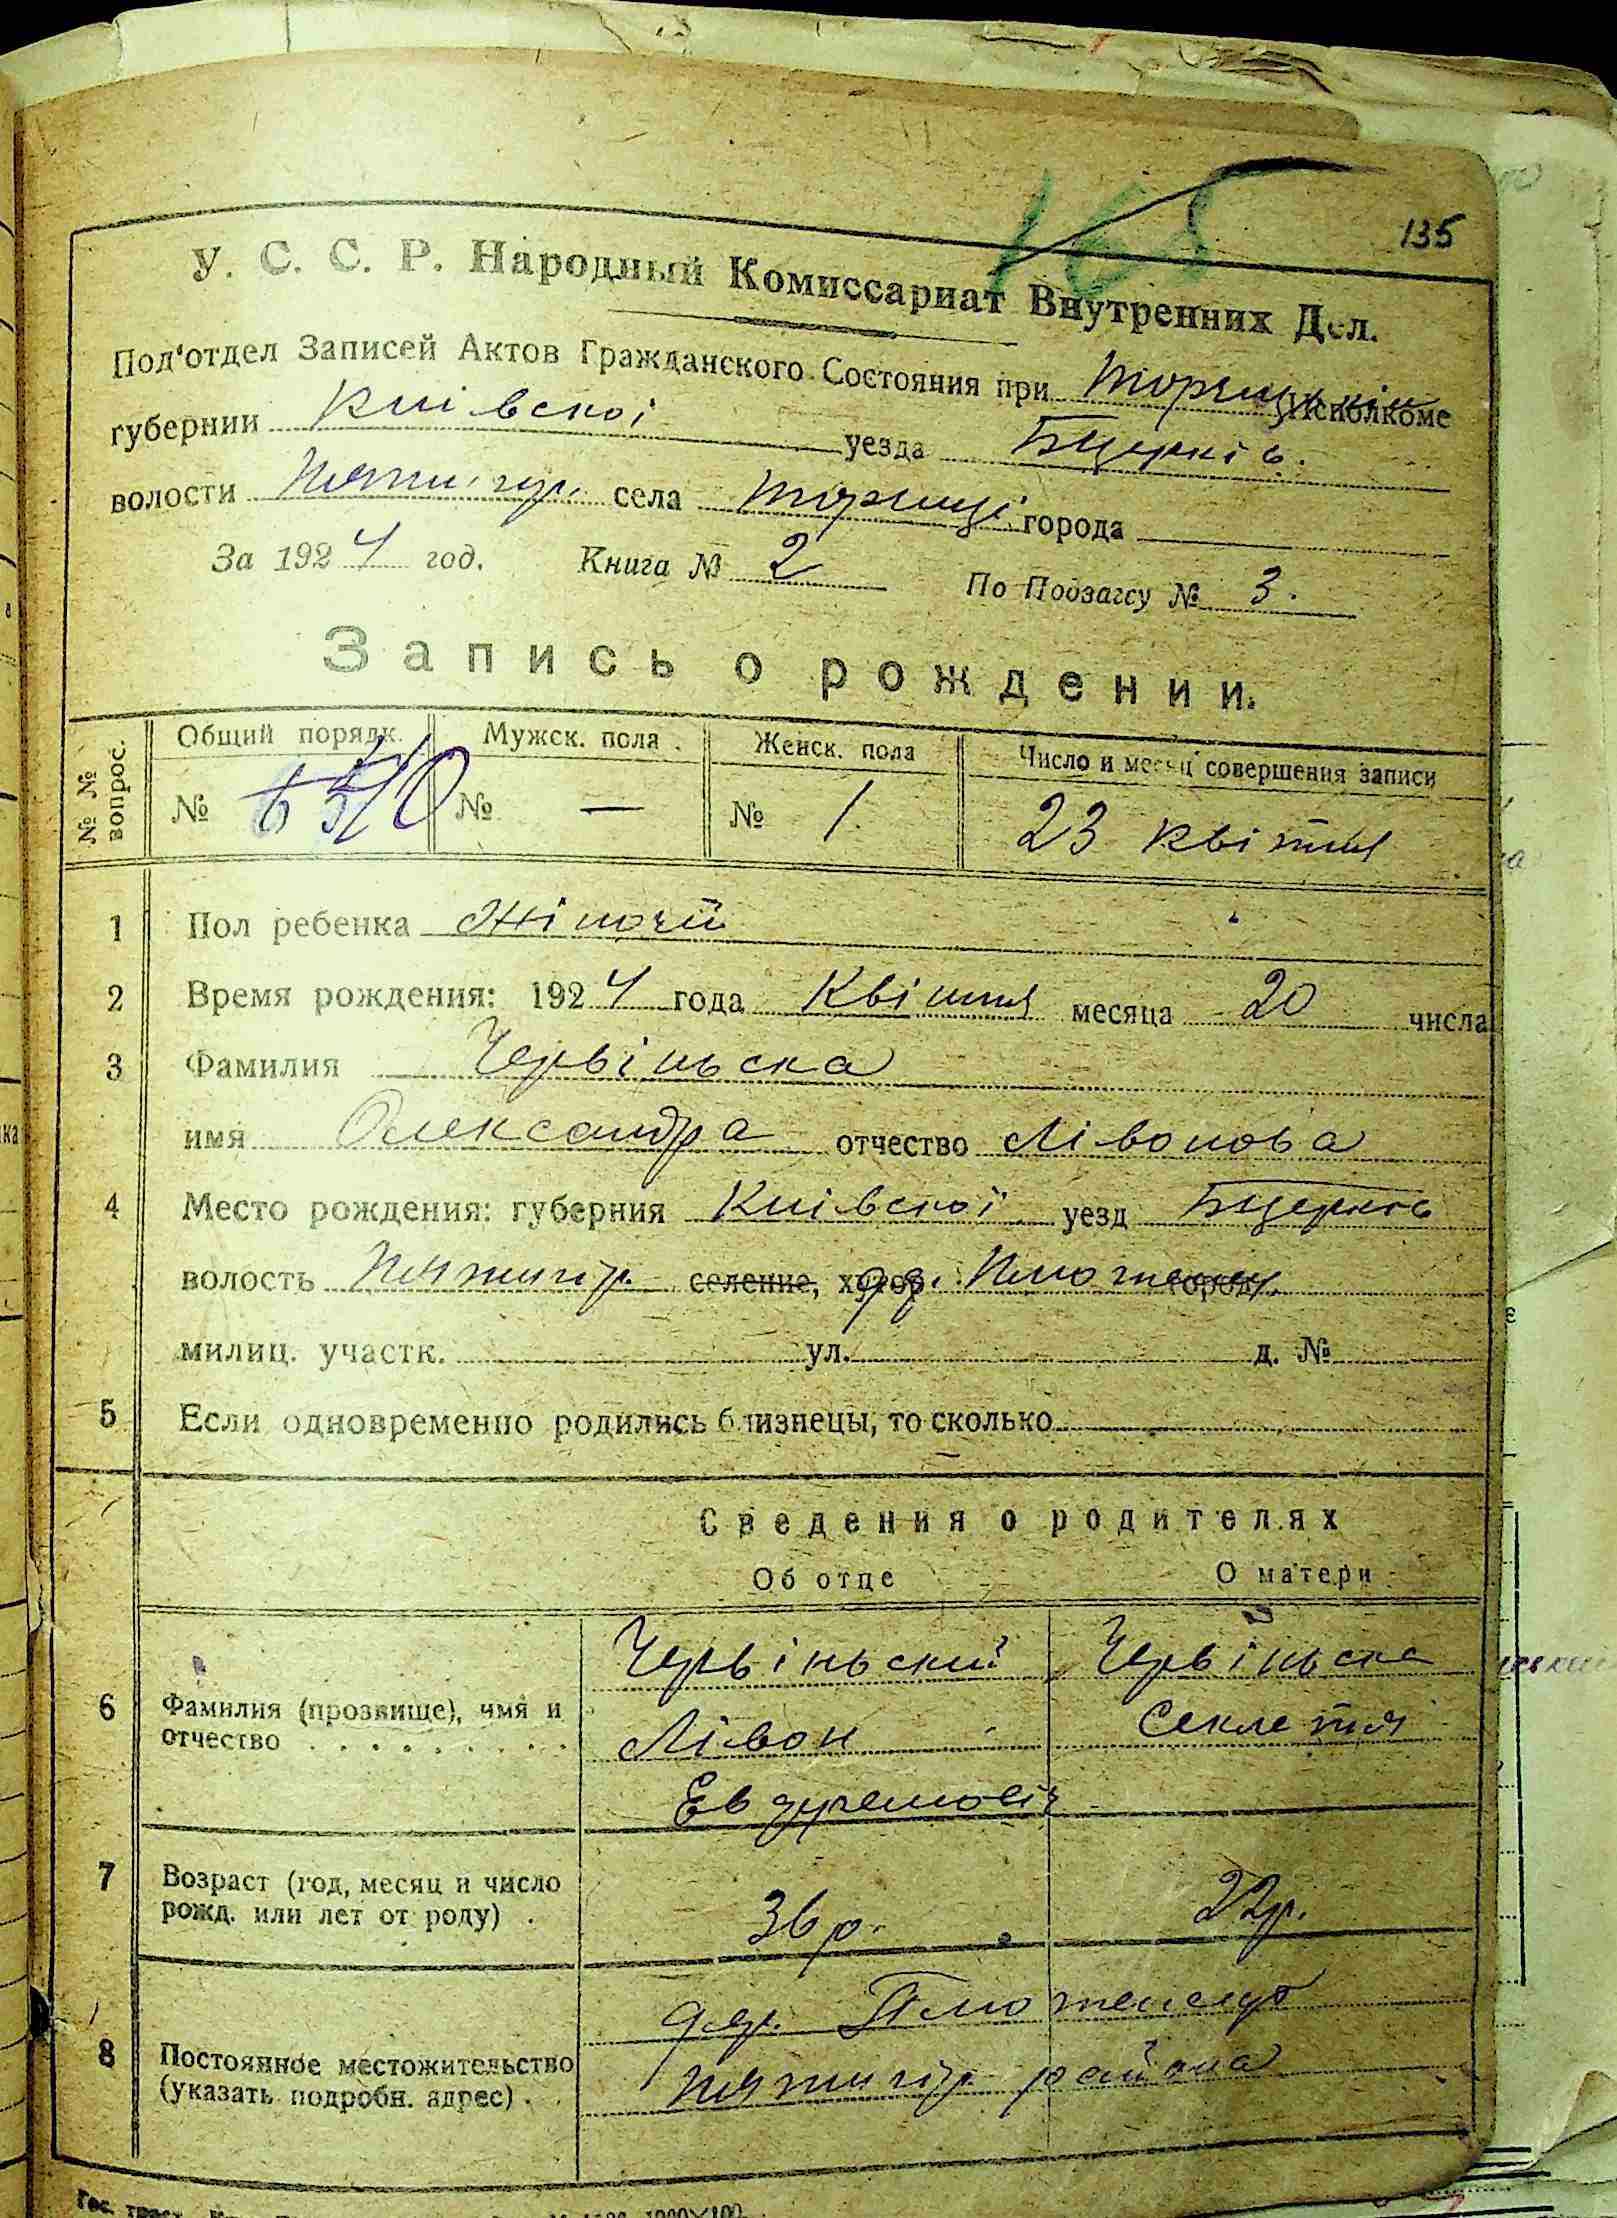 135
165
У. С. С. Р. Народный Комиссариат Внутренних Дел.
Под‘отдел Записей Актов Гражданского Состояния при Исполкоме
губернии Київскоі уезда Бцерків.
волости Пятигор. села Торчиці города
За 1924 год. Книга № 2 По Подзагсу № 3.
Запись о рождении.
№ № вопрос. Общий порядк. Мужск. пола Женск. пола Число и месяц совершения записи
№ № — № 1 23 квітня
1 Пол ребенка Жіночій
2 Время рождения: 1924 года Квітня месяца 20 числа
3 Фамилия Червіньска
имя Олександра отчество Лівонова
4 Место рождения: губерния Київскоі уезд Бцерків
волость Пятигор. селение, хутор город
милиц. участк. ул. д. №
5 Если одновременно родились близнецы, то сколько
Сведения о родителях
Об отце О матери
6 Фамилия (прозвище), имя и отчество Червіньский Червіньска
Лівон Секлетия
7 Возраст (год, месяц и число рожд. или лет от роду) 36 р. 22 р.
8 Постоянное местожительство (указать подробн. адрес)
Пятигор. района